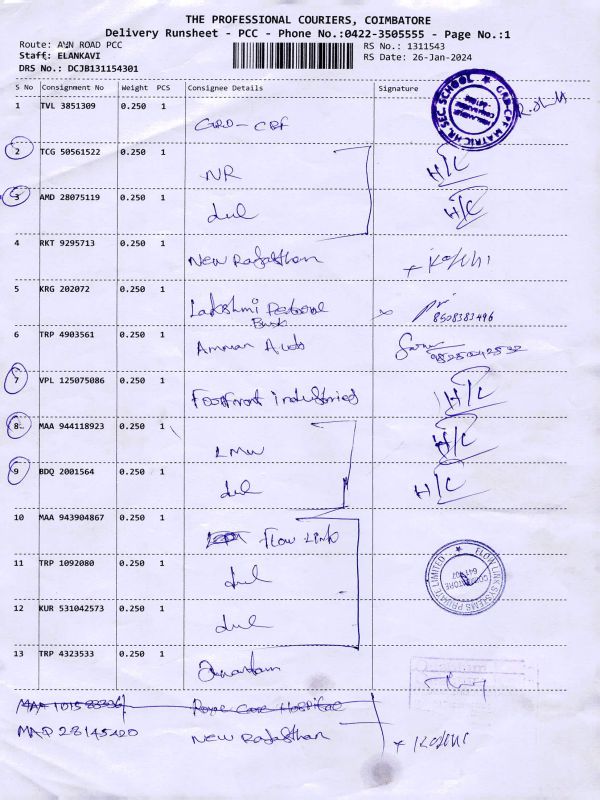 THE PROFESSIONAL COURIERS, COIMBATORE
Delivery Runsheet - PCC - Phone No.:0422-3505555 - Page No.:1
Route: AVN ROAD PCC
RS No.: 1311543
Staff: ELANKAVI
RS Date: 26-Jan-2024
DRS No.: DCJB131154301
S No Consignment No Weight PCS Consignee Details Signature
1 TVL 3851309 0.250 1
GRD-CPF
2 TCG 50561522 0.250 1
NR H/C
3 AMD 28075119 0.250 1
dul H/C
4 RKT 9295713 0.250 1
New Rajasthan
5 KRG 202072 0.250 1
Lakshmi Personal
8508383496
6 TRP 4903561 0.250 1
Amman Auto
7 VPL 125075086 0.250 1
Footfront industries H/C
8 MAA 944118923 0.250 1
LMW H/C
9 BDQ 2001564 0.250 1
dul H/C
10 MAA 943904867 0.250 1
Flow Link
FLOW LINK SYSTEMS PRIVATE LIMITED
COIMBATORE
11 TRP 1092080 0.250 1
dul
12 KUR 531042573 0.250 1
dul
13 TRP 4323533 0.250 1
Rope Care Hospital
MAP 28145420 New Rajasthan